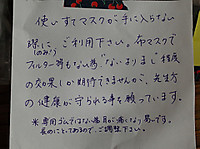 使いすてマスクが手に入らない
際に、ご利用下さい。布マスクで
(のみで)
フィルター等もない為"ないよりまし"程度
の効果しか期待できませんが、先生方
の健康が守られる事を願っています。
※専用ゴムではない為耳が痛くなり易いです。
長めにとってあるので、ご調整下さい。